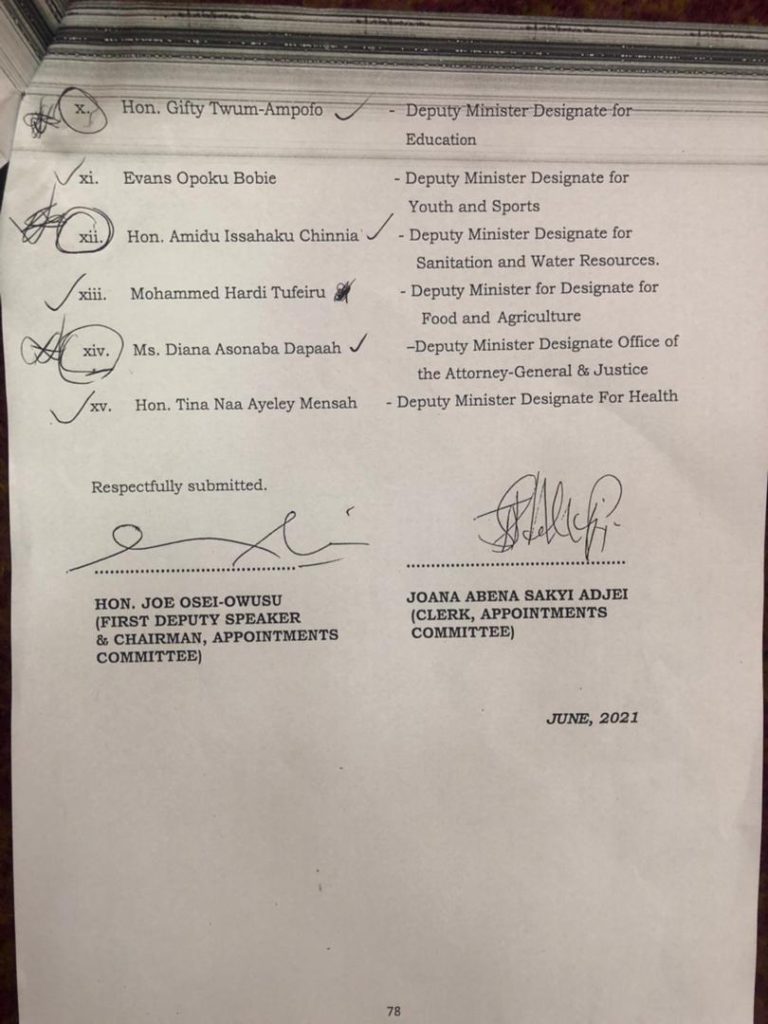 x. Hon. Gifty Twum-Ampofo - Deputy Minister Designate for
Education
xi. Evans Opoku Bobie - Deputy Minister Designate for
Youth and Sports
xii. Hon. Amidu Issahaku Chinnia - Deputy Minister Designate for
Sanitation and Water Resources.
xiii. Mohammed Hardi Tufeiru - Deputy Minister for Designate for
Food and Agriculture
xiv. Ms. Diana Asonaba Dapaah –Deputy Minister Designate Office of
the Attorney-General & Justice
xv. Hon. Tina Naa Ayeley Mensah - Deputy Minister Designate For Health
Respectfully submitted.
HON. JOE OSEI-OWUSU
(FIRST DEPUTY SPEAKER
& CHAIRMAN, APPOINTMENTS
COMMITTEE)
JOANA ABENA SAKYI ADJEI
(CLERK, APPOINTMENTS
COMMITTEE)
JUNE, 2021
78